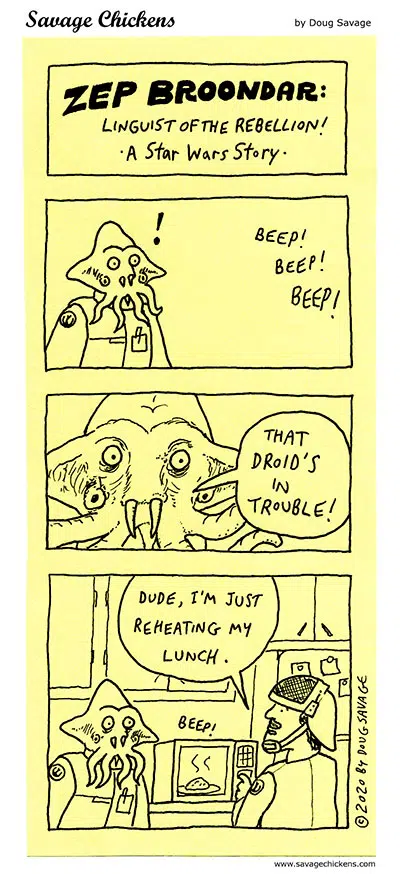 Savage Chickens
by Doug Savage
ZEP BROONDAR:
LINGUIST OF THE REBELLION!
·A STAR WARS STORY·
!
BEEP!
BEEP!
BEEP!
THAT
DROID'S
IN
TROUBLE!
DUDE, I'M JUST
REHEATING MY
LUNCH.
BEEP!
© 2020 BY DOUG SAVAGE
www.savagechickens.com